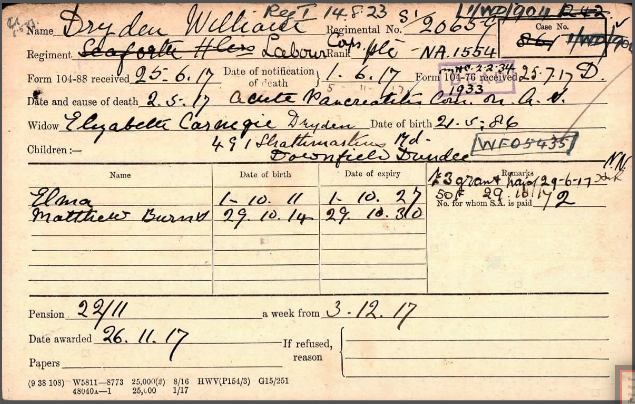 Reg T 14.8.23 S1 11/WD/1904 R42
Name Dryden William Regimental No. 20659 Case No.
Regiment Seaforth Hers Labour Corps Rank Pte NA.1554 11/WD/1904
Form 104-88 received 25-6.17 Date of notification of death 1.6.17 Form 104-76 received 25.7.17 D.
MHC-2-2-34
1933
Date and cause of death 2.5.17 acute Pancreatitis
Widow Elizabeth Carnegie Dryden Date of birth 21.5.86
Children:— 491 Strathmartine Rd. WFO5435
Downfield Dundee
Name Date of birth Date of expiry Remarks
£3 grant paid 29-6-17
Elma 1-10.11 1-10.27 50/- 29.10.17
No. for whom S.A. is paid 2
Matthew Burns 29.10.14 29.10.30
Pension 22/11 a week from 3.12.17
Date awarded 26.11.17 If refused, reason
Papers
(9 38 108) W5811—8773 25,000(2) 8/16 HWV(P154/3) G15/251
48040A—1 25,000 1/17